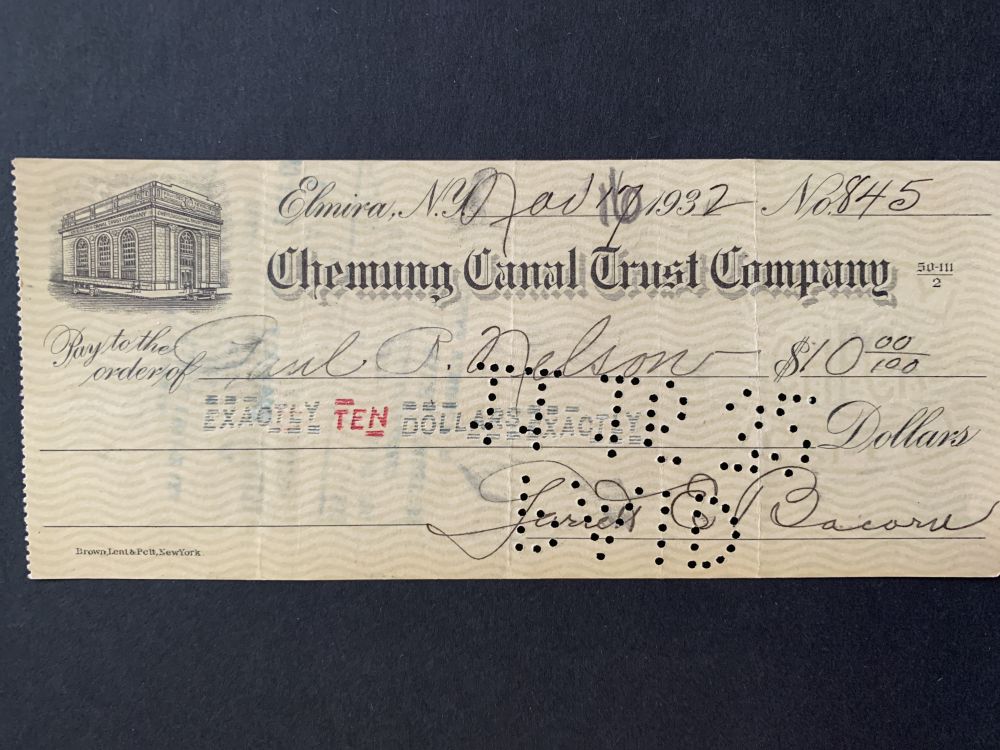 Elmira, N.Y. Nov 1932 No. 845
Chemung Canal Trust Company 50-111/2
Pay to the order of Paul P. Nelson $10 00/100
EXACTLY TEN DOLLARS EXACTLY Dollars
E. Bacorn
Brown, Lent & Pett, New York